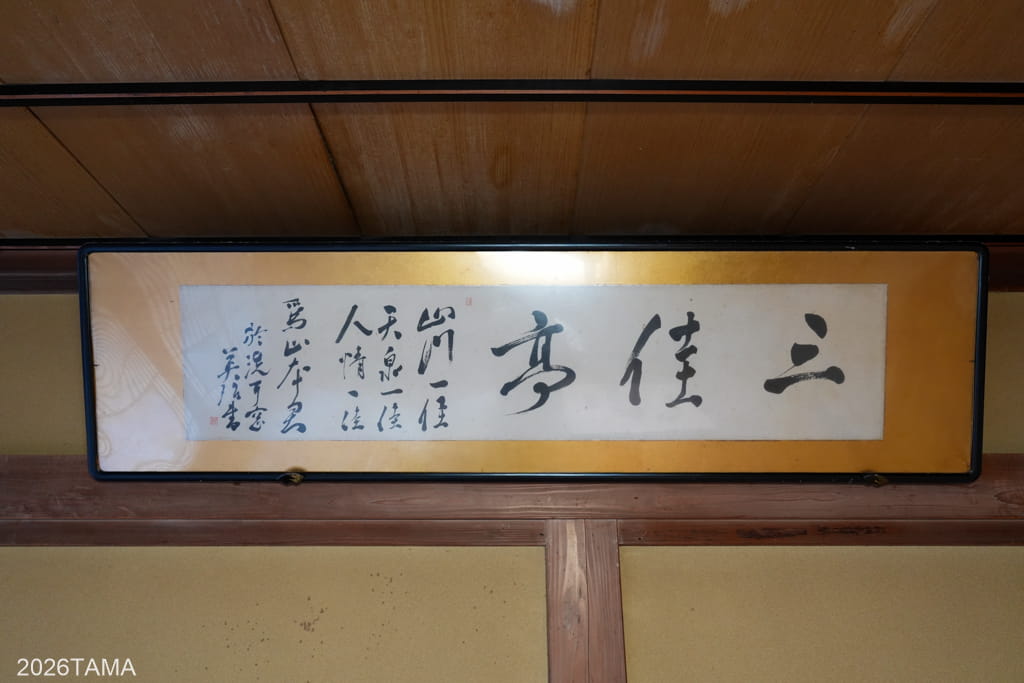 三佳亭
山川一佳
天泉一佳
人情一佳
為山本君
於滉耳窓
英病書
2026TAMA